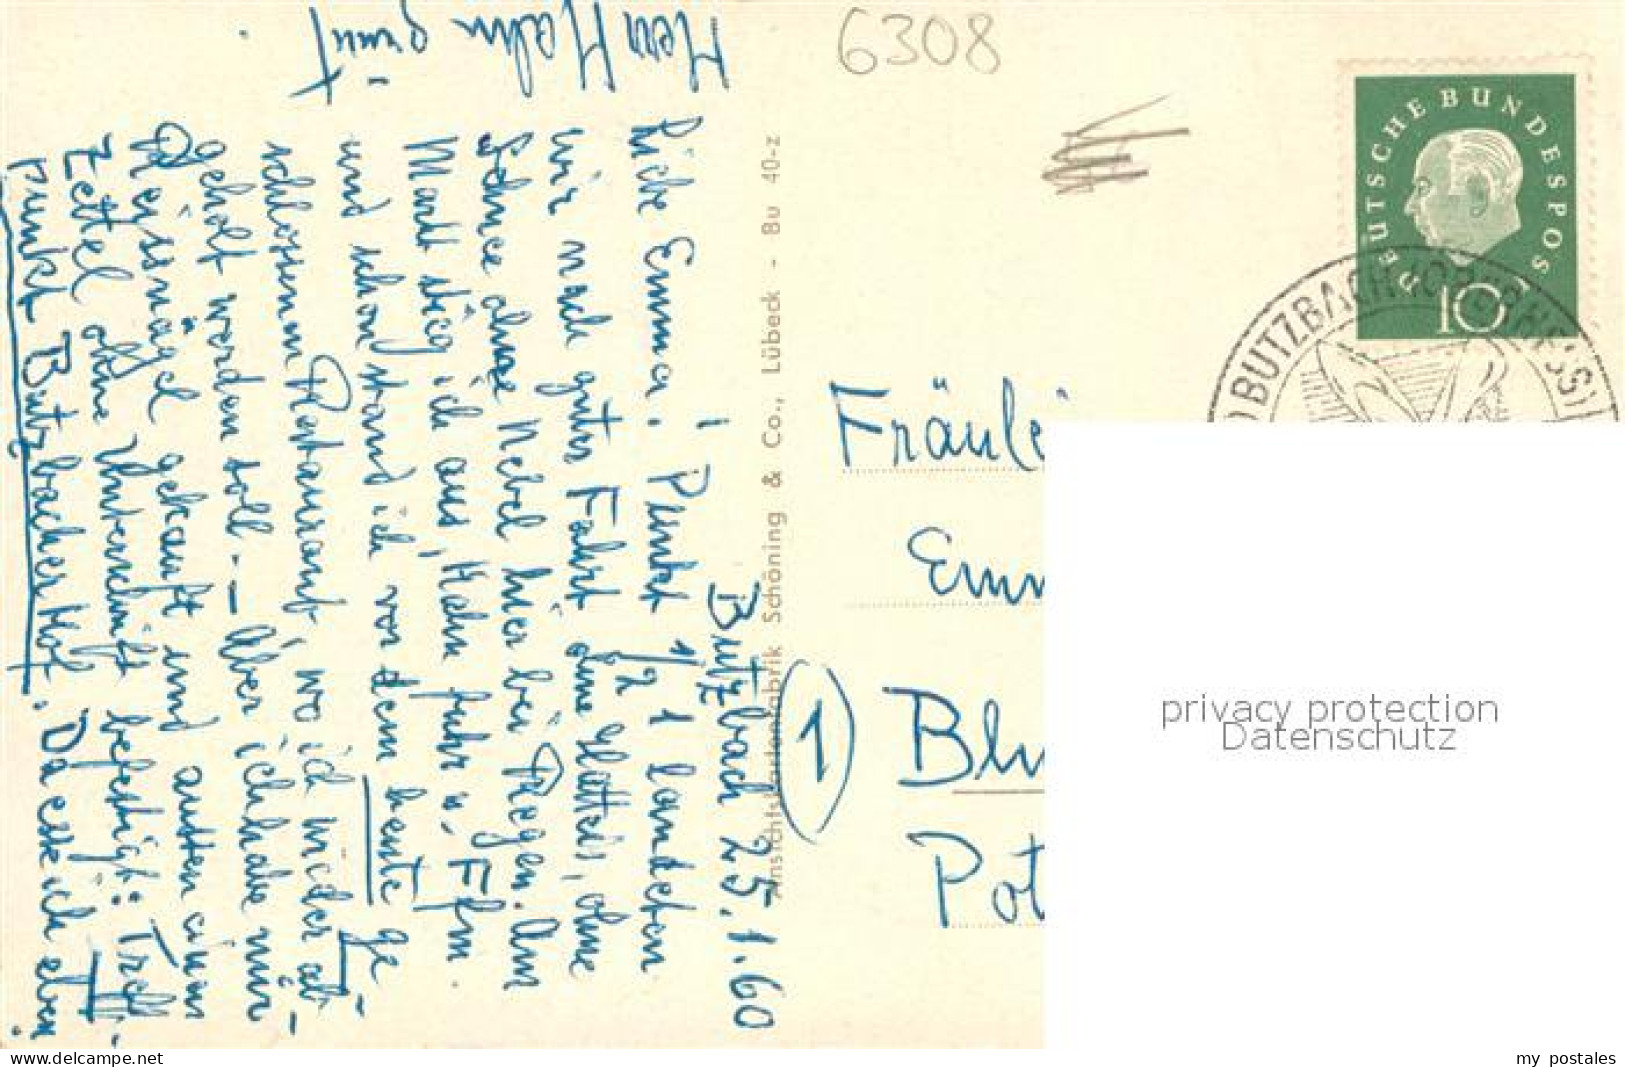 6308
DEUTSCHE BUNDESPOST
10
BUTZBACH (OBERHESS)
Butzbach 25.1.60
Liebe Emma! Punkt 1/2 1 landeten
wir nach guter Fahrt ohne Glatteis, ohne
Schnee ohne Nebel hier bei Regen. Am
Markt stieg ich aus, Hahn fuhr n. Ffm.
und schon stand ich vor dem heute ge-
schlossenen Restaurant, wo ich wieder ab-
geholt werden soll. – Aber ich habe mir
Reissnägel gekauft und aussen einen
Zettel ohne Unterschrift befestigt: Treff-
punkt Butzbacher Hof. Da esse ich eben.
Herr Hahn grüßt
Ansichtskartenfabrik Schöning & Co., Lübeck - Bu 40-z
1
privacy protection
Datenschutz
www.delcampe.net
my_postales